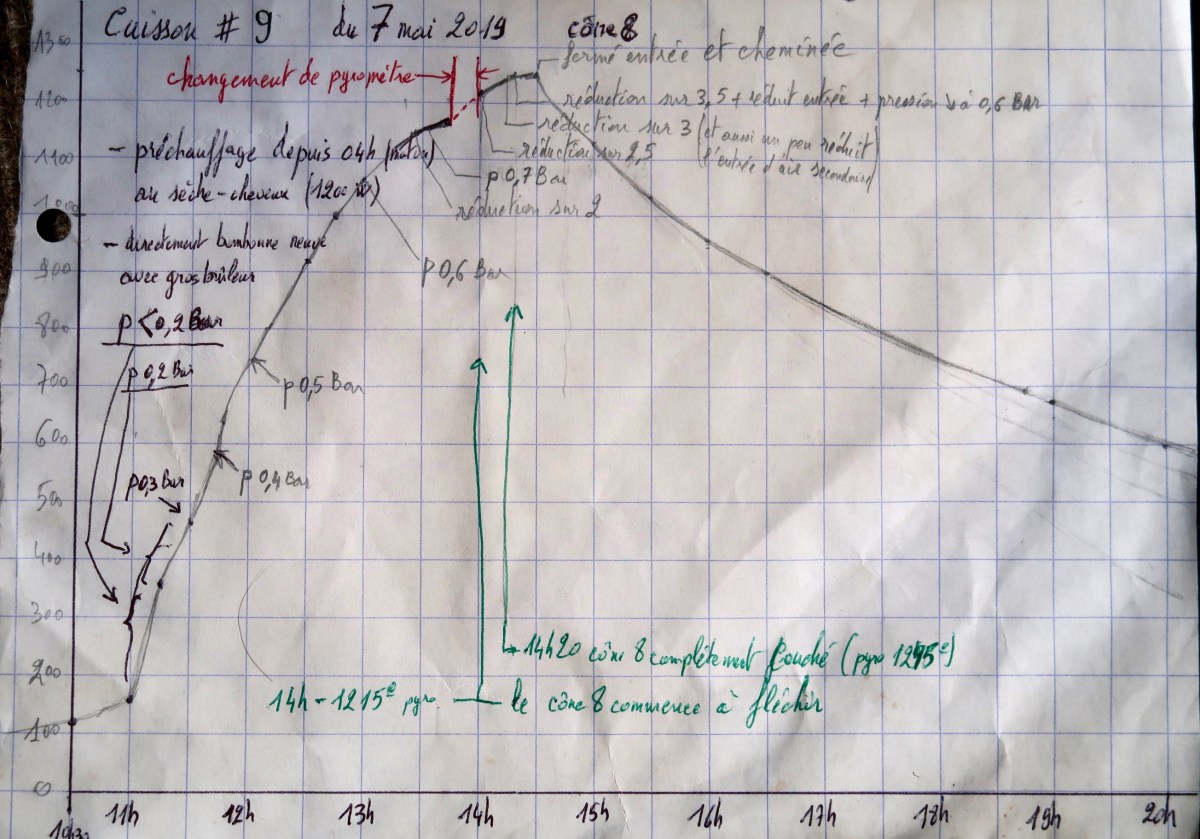 Cuisson # 9 du 7 mai 2019 cône 8
fermé entrée et cheminée
changement de pyromètre
réduction sur 3,5 + réduit entrée + pression ↘ à 0,6 Bar
réduction sur 3 (et aussi un peu réduit
l'entrée d'air secondaire)
réduction sur 2,5
p 0,7 Bar
réduction sur 2
- préchauffage depuis 04h (matin)
au sèche-cheveux
- directement bombonne neuve
avec gros brûleur
p 0,6 Bar
p < 0,2 Bar
p 0,2 Bar
p 0,5 Bar
p 0,4 Bar
p 0,3 Bar
14h20 cône 8 complètement couché (pyro 1245°)
14h - 1215° pyro. le cône 8 commence à fléchir
1300
1200
1100
1000
900
800
700
600
500
400
300
200
100
0
10h30 11h 12h 13h 14h 15h 16h 17h 18h 19h 20h